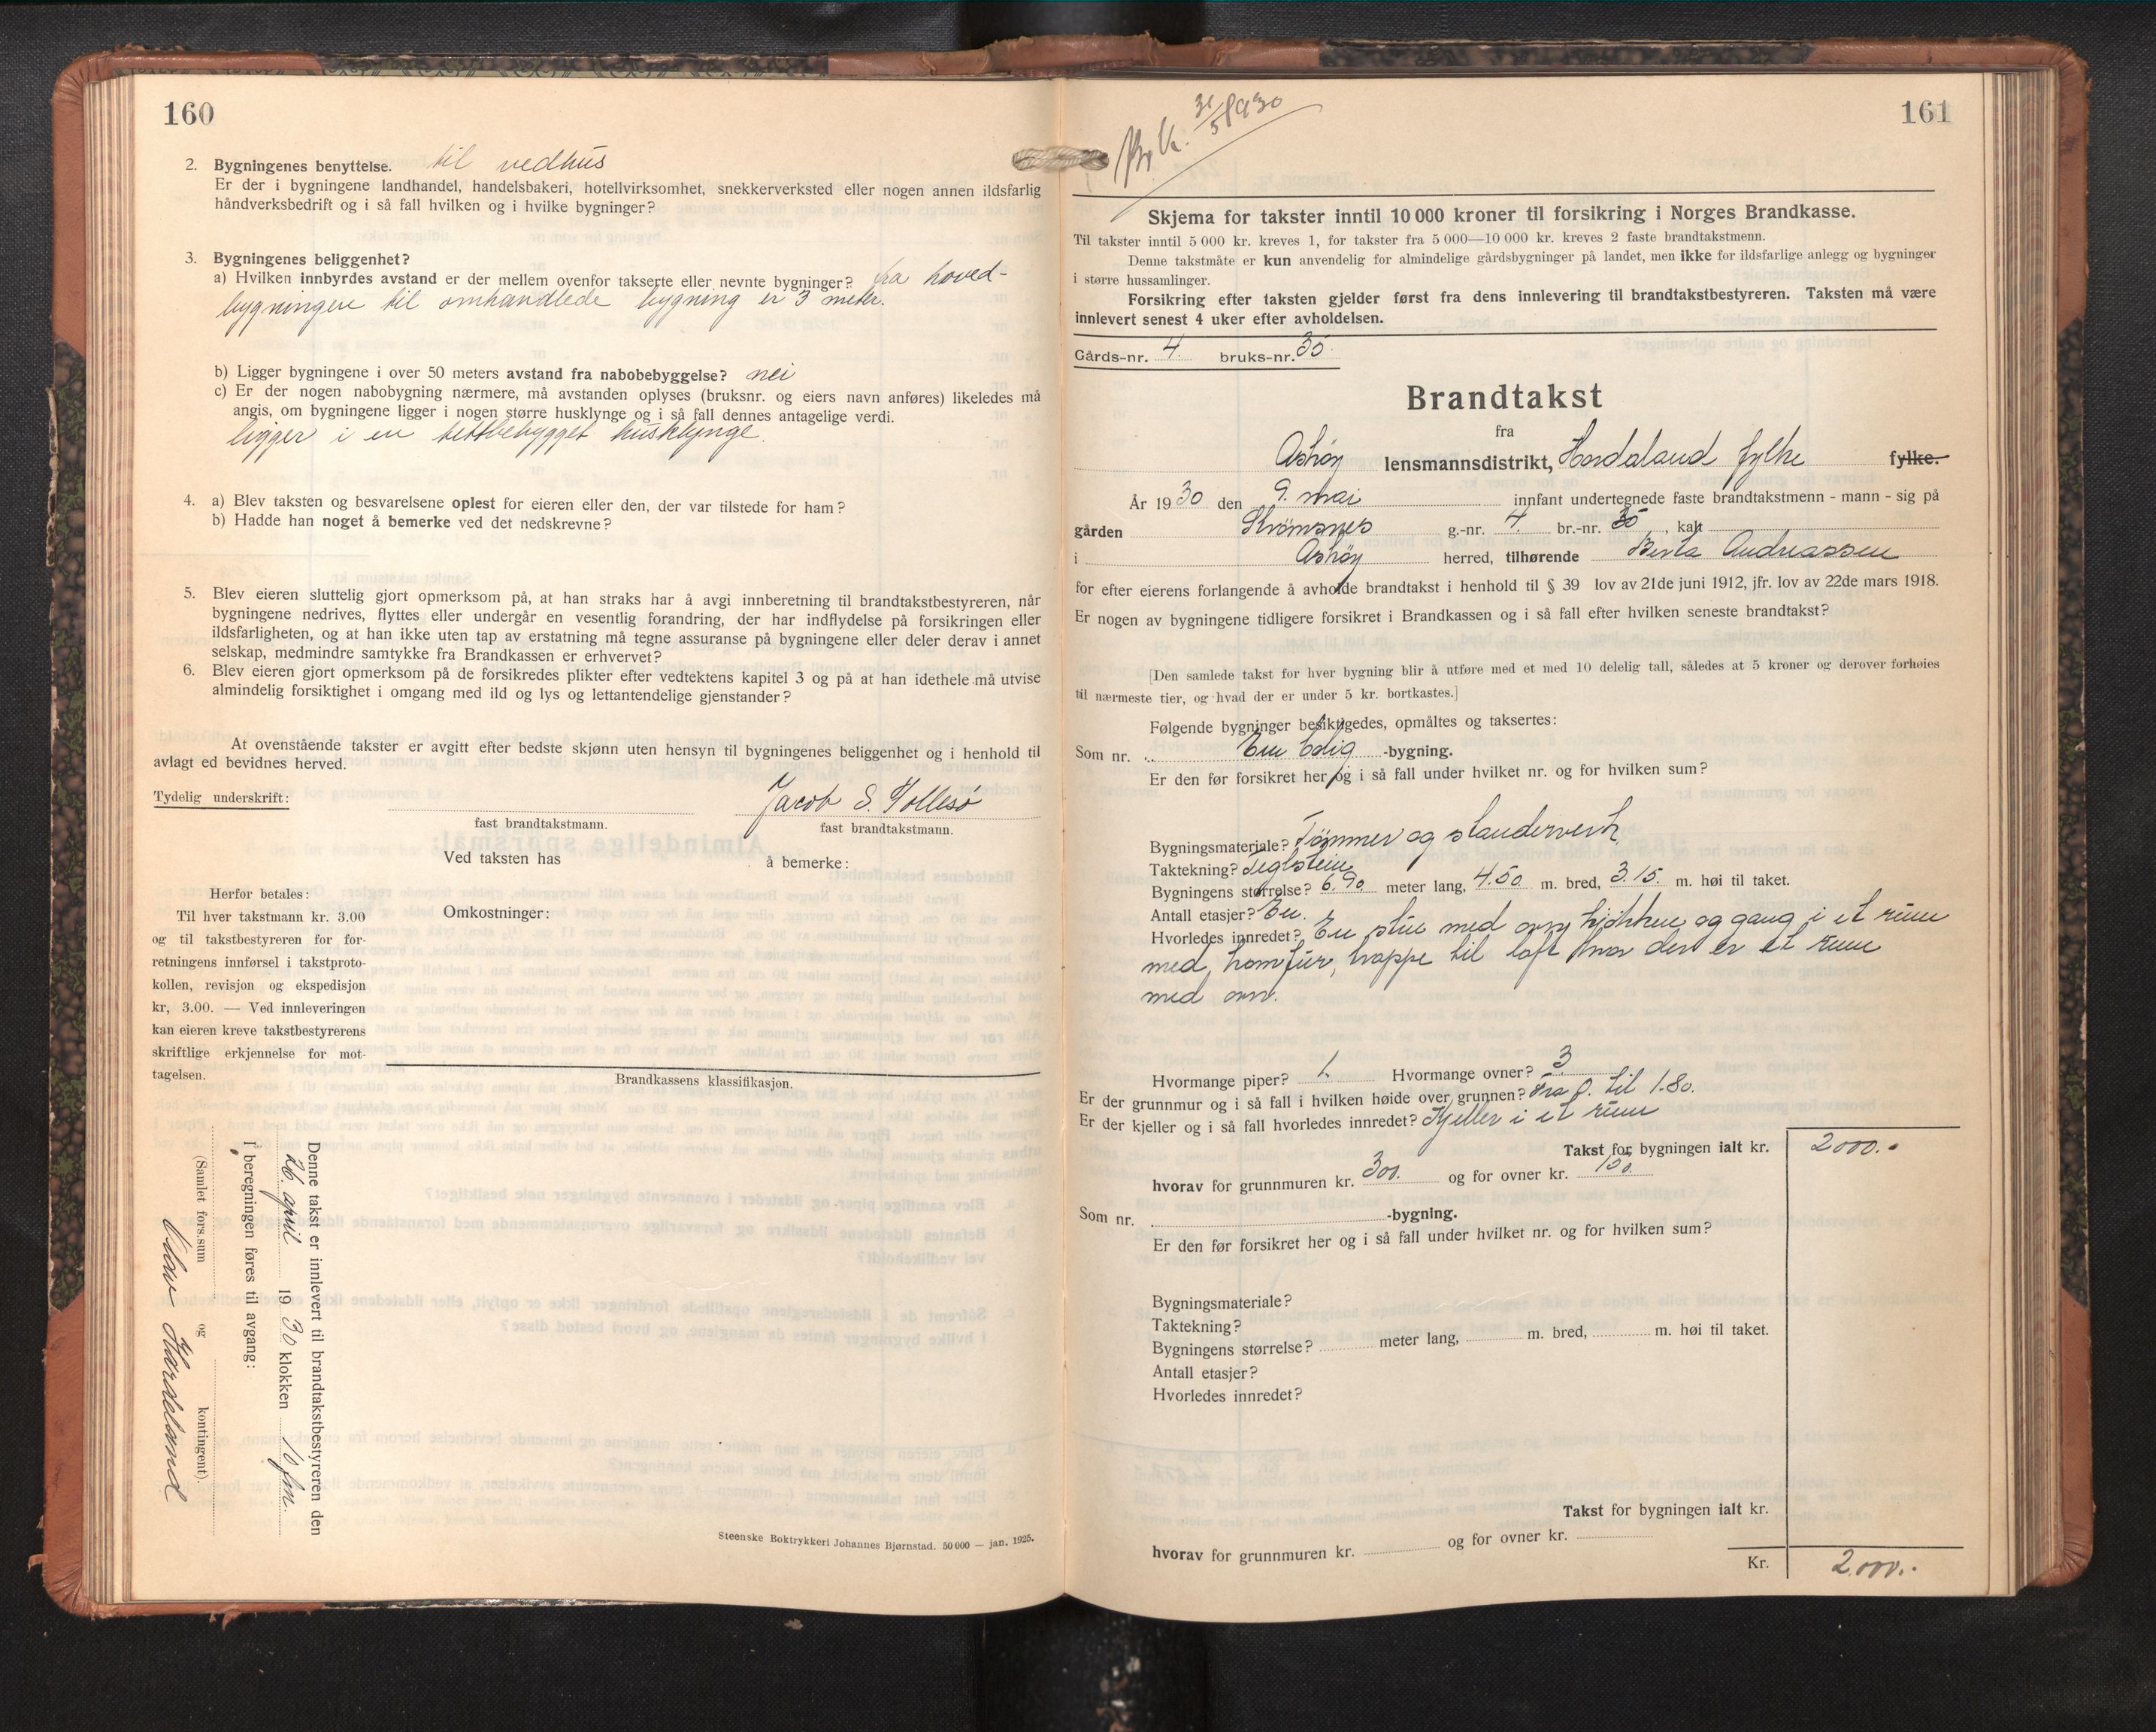 160
2. Bygningenes benyttelse. til vedhus
Er der i bygningene landhandel, handelsbakeri, hotellvirksomhet, snekkerverksted eller nogen annen ildsfarlig
håndverksbedrift og i så fall hvilken og i hvilke bygninger?
3. Bygningenes beliggenhet?
a) Hvilken innbyrdes avstand er der mellem ovenfor takserte eller nevnte bygninger? fra hoved-
bygningen til omhandlede bygning er 3 meter.
b) Ligger bygningene i over 50 meters avstand fra nabobebyggelse? nei
c) Er der nogen nabobygning nærmere, må avstanden oplyses (bruksnr. og eiers navn anføres) likeledes må
angis, om bygningene ligger i nogen større husklynge og i så fall dennes antagelige verdi.
ligger i en tettbebygget husklynge.
4. a) Blev taksten og besvarelsene oplest for eieren eller den, der var tilstede for ham?
b) Hadde han noget å bemerke ved det nedskrevne?
5. Blev eieren sluttelig gjort opmerksom på, at han straks har å avgi innberetning til brandtakstbestyreren, når
bygningene nedrives, flyttes eller undergår en vesentlig forandring, der har indflydelse på forsikringen eller
ildsfarligheten, og at han ikke uten tap av erstatning må tegne assuranse på bygningene eller deler derav i annet
selskap, medmindre samtykke fra Brandkassen er erhvervet?
6. Blev eieren gjort opmerksom på de forsikredes plikter efter vedtektens kapitel 3 og på at han idethele må utvise
almindelig forsiktighet i omgang med ild og lys og lettantendelige gjenstander?
At ovenstående takster er avgitt efter bedste skjønn uten hensyn til bygningenes beliggenhet og i henhold til
avlagt ed bevidnes herved.
Tydelig underskrift: Jacob S. Tollesø
fast brandtakstmann. fast brandtakstmann.
Ved taksten has å bemerke:
Herfor betales:
Til hver takstmann kr. 3.00
og til takstbestyreren for for-
retningens innførsel i takstproto-
kollen, revisjon og ekspedisjon
kr, 3.00. — Ved innleveringen
kan eieren kreve takstbestyrerens
skriftlige erkjennelse for mot-
tagelsen.
Omkostninger:
Brandkassens klassifikasjon.
Denne takst er innlevert til brandtakstbestyreren den
26. april 1930 klokken 10 fm.
I beregningen føres til avgang:
(Samlet fors.sum og kontingent).
Olav Hardeland
Steenske Boktrykkeri Johannes Bjørnstad. 50 000 — jan. 1925.
161
31/5 1930
Skjema for takster inntil 10 000 kroner til forsikring i Norges Brandkasse.
Til takster inntil 5 000 kr. kreves 1, for takster fra 5 000—10 000 kr. kreves 2 faste brandtakstmenn.
Denne takstmåte er kun anvendelig for almindelige gårdsbygninger på landet, men ikke for ildsfarlige anlegg og bygninger
i større hussamlinger.
Forsikring efter taksten gjelder først fra dens innlevering til brandtakstbestyreren. Taksten må være
innlevert senest 4 uker efter avholdelsen.
Gårds-nr. 4. bruks-nr. 35.
Brandtakst
fra
Askøy lensmannsdistrikt, Hordaland fylke fylke.
År 1930 den 9. mai innfant undertegnede faste brandtakstmenn - mann - sig på
gården Strömsnes g.-nr. 4. br.-nr. 35, kalt
i Askøy herred, tilhørende Berta Andreassen
for efter eierens forlangende å avholde brandtakst i henhold til § 39 lov av 21de juni 1912, jfr. lov av 22de mars 1918.
Er nogen av bygningene tidligere forsikret i Brandkassen og i så fall efter hvilken seneste brandtakst?
[Den samlede takst for hver bygning blir å utføre med et med 10 delelig tall, således at 5 kroner og derover forhøies
til nærmeste tier, og hvad der er under 5 kr. bortkastes.]
Følgende bygninger besiktigedes, opmåltes og taksertes:
Som nr. En bolig -bygning.
Er den før forsikret her og i så fall under hvilket nr. og for hvilken sum?
Bygningsmateriale? Tømmer og standerverk
Taktekning? Teglstein
Bygningens størrelse? 6.90. meter lang, 4.50. m. bred, 3.15. m. høi til taket.
Antall etasjer? En.
Hvorledes innredet? En stue med ovn, kjøkken og gang i et rum
med komfur, trappe til loft hvor der er et rum
med ovn.
Hvormange piper? 1. Hvormange ovner? 3
Er der grunnmur og i så fall i hvilken høide over grunnen? Fra 0. til 1.80.
Er der kjeller og i så fall hvorledes innredet? Kjeller i et rum
Takst for bygningen ialt kr. 2000.-
hvorav for grunnmuren kr. 300. og for ovner kr. 150.
Som nr. -bygning.
Er den før forsikret her og i så fall under hvilket nr. og for hvilken sum?
Bygningsmateriale?
Taktekning?
Bygningens størrelse? meter lang, m. bred, m. høi til taket.
Antall etasjer?
Hvorledes innredet?
Takst for bygningen ialt kr.
hvorav for grunnmuren kr. og for ovner kr.
Kr. 2000.-